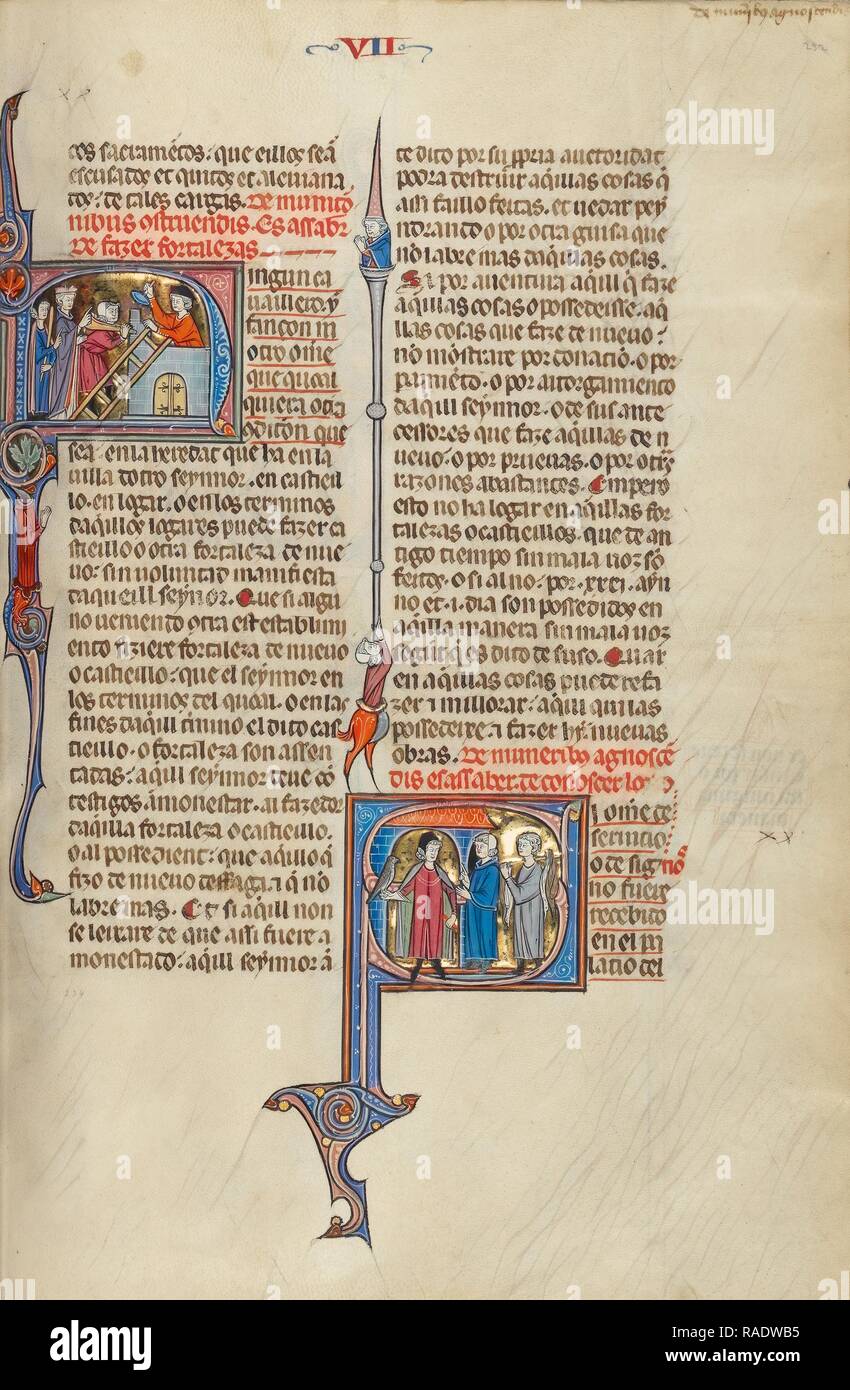 VII
de munibꝯ agnoscendis
292
cos sacramẽtos: que eillos seã
escusados et quitos et aleuiana
dos: de tales cargas. De munitio
nibus ostruendis. Es assabr
De fazer fortalezas
Ningun ca
uaillero. ỹ
fançon ni
otro ome
que qual
quiera otra
ɔditiõn que
sea. en la heredat que ha en la
uilla dotro seynnor. en castieil
lo. en logar. o en los terminos
daq̃illos logares puede fazer ca
stieillo o otra fortaleza de nue
uo: sin uoluntad manifiesta
daqueill seynor. Que si algu
no ueniendo ɔtra est establimi
ento fiziere fortaleza de nueuo
o castieillo: que el seynnor en
los terminos del qual. o en las
fines daq̃ill tmino el dito cas
tieillo. o fortaleza son assen
tadas: aq̃ill seynnor deue cõ
testigos amonestar. al fazedor
daq̃illa fortaleza o castieillo.
o al possedient: que aq̃llo q̃
fizo de nueuo desfaga. ⁊ q̃ nõ
labre mas. Et si aq̃ill non
se leixare de que assi fuere a
monestado: aq̃ill seynnor ã
te dito por su ppria auctoridat
podra destruir aq̃illas cosas q̃
assi faillo feitas. et uedar pey
ndrando o por otra guisa que
nõ labre mas daq̃illas cosas.
Si por auentura aq̃ill q̃ faze
aq̃illas cosas o possedeisse. aq̃
llas cosas que faze de nueuo:
nõ mõstrare por donatiõ. o por
paramẽto. o por atorgamiento
daq̃ill seynnor. o de sus ante
cessores que faze aq̃illas de n
ueuo: o por prueuas. o por otras
razones abastantes. Empero
esto no ha logar en aq̃illas for
talezas o castieillos. que de an
tigo tiempo sin mala uoz sõ
feitos. o si al no: por .xxxi. ayn
no et .i. dia son possedidos en
aq̃illa manera sin mala uoz
segunt q̃ es dito de suso. Quar
en aq̃illas cosas puede refa
zer ⁊ millorar: aq̃ill qui las
possedeire ⁊ fazer hy nueuas
obras. De muneribꝯ agnoscẽ
dis es assaber. de conoscer los
Si ome de
seruitio:
o de signo
no fuere
recebido
en el pa
latio del
alamy
alamy
Image ID: RADWB5
www.alamy.com